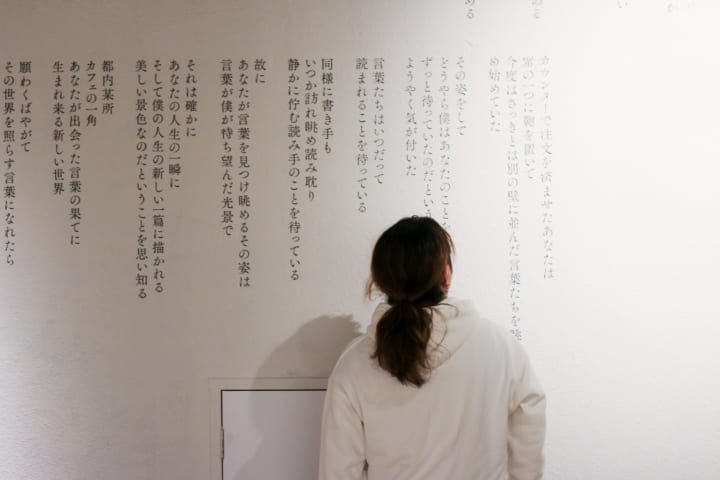 い
める
カウンターで注文を済ませたあなたは
席の一つに鞄を置いて
今度はさっきとは別の壁に並んだ言葉たちを眺
め始めていた
その姿をして
どうやら僕はあなたのことを
ずっと待っていたのだという
ようやく気が付いた
言葉たちはいつだって
読まれることを待っている
同様に書き手も
いつか訪れ眺め読み耽り
静かに佇む読み手のことを待っている
故に
あなたが言葉を見つけ眺めるその姿は
言葉が僕が待ち望んだ光景で
それは確かに
あなたの人生の一瞬に
そして僕の人生の新しい一篇に描かれる
美しい景色なのだということを思い知る
都内某所
カフェの一角
あなたが出会った言葉の果てに
生まれ来る新しい世界
願わくばやがて
その世界を照らす言葉になれたら